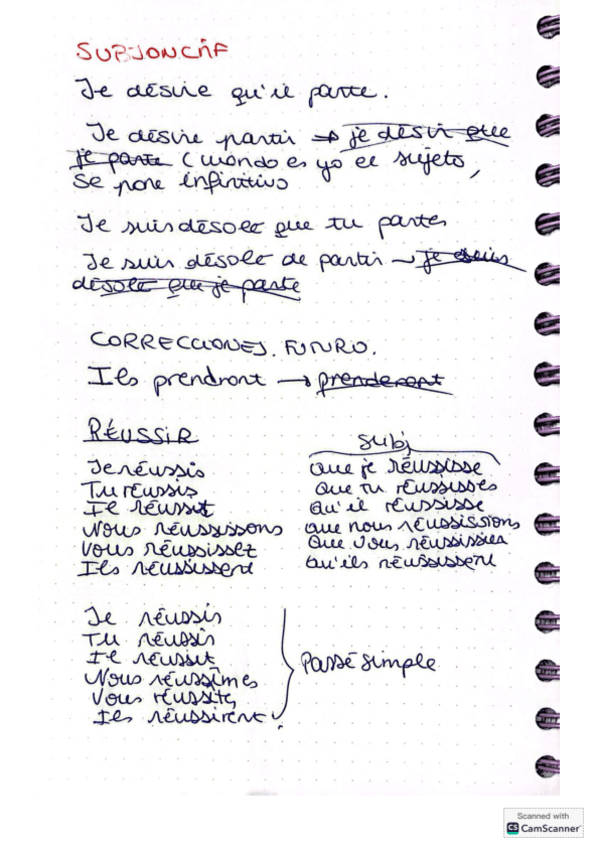 SUBJONCTIF
Je désire qu'il parte.
Je désire partir → je désir que
je parte (cuando es yo el sujeto,
se pone infinitivo
Je suis désolé que tu partes
Je suis désolé de partir → je suis
désolé que je parte
CORRECCIONES. FUTURO.
Ils prendront → prenderont
RÉUSSIR
Subj
Je réussis que je réussisse
Tu réussis que tu réussisses
Il réussit qu'il réussisse
Nous réussissons que nous réussissions
Vous réussissez que vous réussissiez
Ils réussissent qu'ils réussissent
Je réussis
Tu réussis
Il réussit
Nous réussîmes Passé simple
Vous réussites
Ils réussirent
Scanned with
CS CamScanner